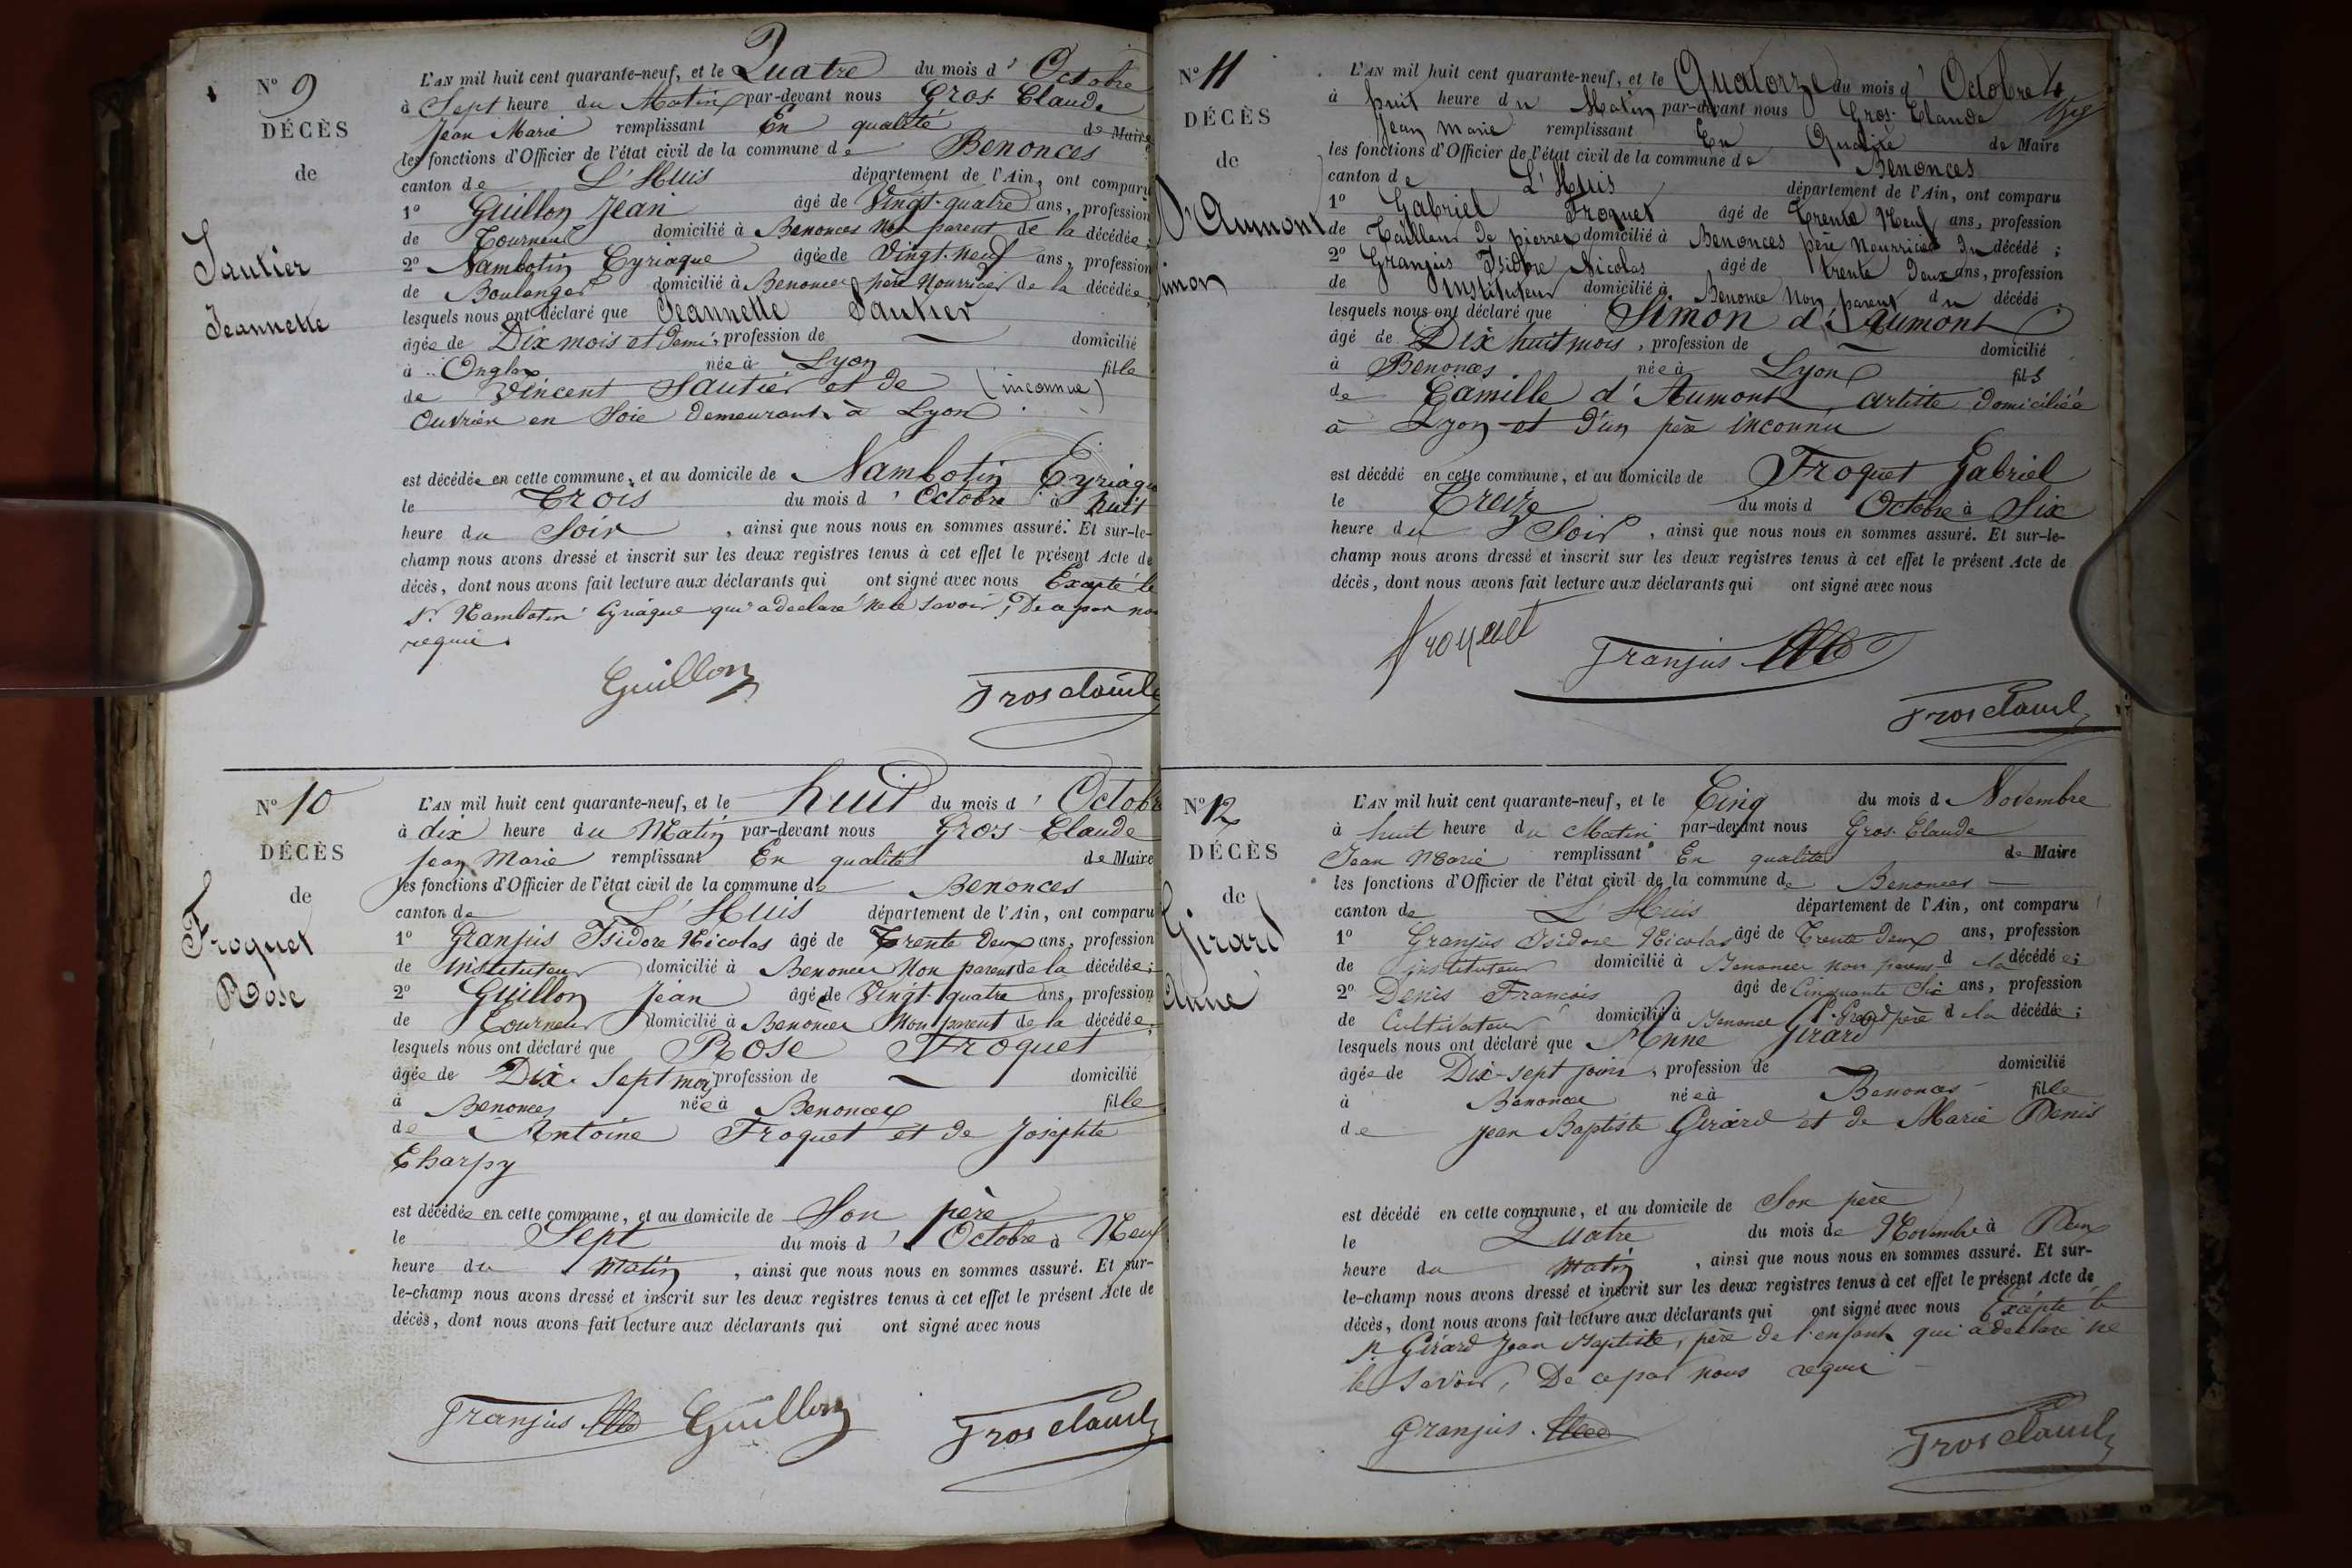 N° 9
DÉCÈS
de
Sautier
Jeannette
L'AN mil huit cent quarante-neuf, et le Quatre du mois d' Octobre
à Sept heure du Matin par-devant nous Gros-Claude
Jean Marie remplissant En qualité de Maire
les fonctions d'Officier de l'état civil de la commune de Benonces
canton de L'Huis département de l'Ain, ont comparu
1° Guillon Jean âgé de Vingt-quatre ans, profession
de Tourneur domicilié à Benonces non parent de la décédée;
2° Nambotin Cyriaque âgé de Vingt-neuf ans, profession
de Boulanger domicilié à Benonces père Nourricier de la décédée;
lesquels nous ont déclaré que Jeannette Sautier
âgée de Dix mois et demi, profession de domicilié
à Onglas née à Lyon fille
de Vincent Sautier et de (inconnue)
Ouvrier en Soie demeurant à Lyon
est décédée en cette commune, et au domicile de Nambotin Cyriaque
le Trois du mois d' Octobre à huit
heure du Soir, ainsi que nous nous en sommes assuré. Et sur-le-
champ nous avons dressé et inscrit sur les deux registres tenus à cet effet le présent Acte de
décès, dont nous avons fait lecture aux déclarants qui ont signé avec nous Excepté le
Sr. Nambotin Cyriaque qui a declaré ne le savoir, De ce par nous
requis.
Guillon
Gros claude
N° 10
DÉCÈS
de
Froquet
Rose
L'AN mil huit cent quarante-neuf, et le huit du mois d' Octobre
à dix heure du Matin par-devant nous Gros-Claude
Jean Marie remplissant En qualité de Maire
les fonctions d'Officier de l'état civil de la commune de Benonces
canton de L'Huis département de l'Ain, ont comparu
1° Granjus Isidore Nicolas âgé de Trente Deux ans, profession
de instituteur domicilié à Benonces Non parent de la décédée;
2° Guillon Jean âgé de Vingt-quatre ans, profession
de Tourneur domicilié à Benonces Non parent de la décédée;
lesquels nous ont déclaré que Rose Froquet
âgée de Dix-Sept mois profession de domicilié
à Benonces née à Benonces fille
de Antoine Froquet et de Josephte
Charpy
est décédée en cette commune, et au domicile de Son père
le Sept du mois d' Octobre à Neuf
heure du Matin, ainsi que nous nous en sommes assuré. Et sur-
le-champ nous avons dressé et inscrit sur les deux registres tenus à cet effet le présent Acte de
décès, dont nous avons fait lecture aux déclarants qui ont signé avec nous
Granjus Guillon Gros claude
N° 11
DÉCÈS
de
D'Aumont
Simon
L'AN mil huit cent quarante-neuf, et le Quatorze du mois d' Octobre
à huit heure du Matin par-devant nous Gros-Claude
Jean Marie remplissant En Qualité de Maire
les fonctions d'Officier de l'état civil de la commune de Benonces
canton de L'Huis département de l'Ain, ont comparu
1° Gabriel Froquet âgé de Trente Neuf ans, profession
de Tailleur de pierres domicilié à Benonces père nourricier du décédé;
2° Granjus Isidore Nicolas âgé de trente Deux ans, profession
de instituteur domicilié à Benonce Non parent du décédé
lesquels nous ont déclaré que Simon d'Aumont
âgé de Dix huit mois, profession de domicilié
à Benonces née à Lyon fils
de Camille d'Aumont artiste domiciliée
à Lyon et d'un père inconnu
est décédé en cette commune, et au domicile de Froquet Gabriel
le Treize du mois d Octobre à Six
heure du Soir, ainsi que nous nous en sommes assuré. Et sur-le-
champ nous avons dressé et inscrit sur les deux registres tenus à cet effet le présent Acte de
décès, dont nous avons fait lecture aux déclarants qui ont signé avec nous
Froquet
Granjus
Gros claude
N° 12
DÉCÈS
de
Girard
Anne
L'AN mil huit cent quarante-neuf, et le Cinq du mois d Novembre
à huit heure du Matin par-devant nous Gros-Claude
Jean Marie remplissant En qualité de Maire
les fonctions d'Officier de l'état civil de la commune de Benonces
canton de L'Huis département de l'Ain, ont comparu
1° Granjus Isidore Nicolas âgé de Trente Deux ans, profession
de instituteur domicilié à Benonces non parent d la décédée;
2° Denis François âgé de Cinquante Six ans, profession
de Cultivateur domicilié à Benonce Grand père d la décédée;
lesquels nous ont déclaré que Anne Girard
âgée de Dix-sept jours, profession de domicilié
à Benonces née à Benonces fille
de Jean Baptiste Girard et de Marie Denis
est décédé en cette commune, et au domicile de Son père
le Quatre du mois de Novembre à Deux
heure du Matin, ainsi que nous nous en sommes assuré. Et sur-
le-champ nous avons dressé et inscrit sur les deux registres tenus à cet effet le présent Acte de
décès, dont nous avons fait lecture aux déclarants qui ont signé avec nous Excepté le
Sr. Girard Jean Baptiste, père de l'enfant qui a declaré ne
le Savoir, De ce par nous requis
Granjus.
Gros claude